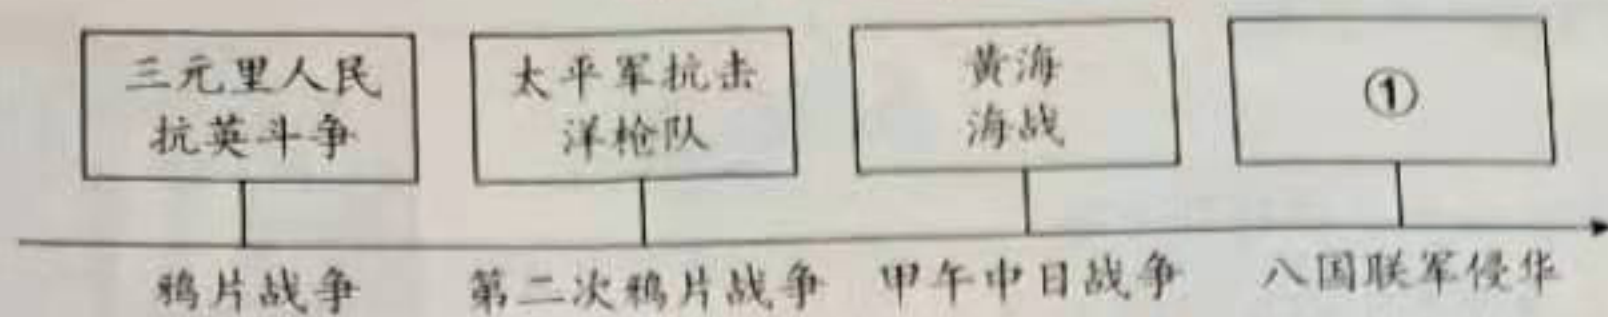 三元里人民
抗英斗争
太平军抗击
洋枪队
黄海
海战
①
鸦片战争
第二次鸦片战争
甲午中日战争
八国联军侵华